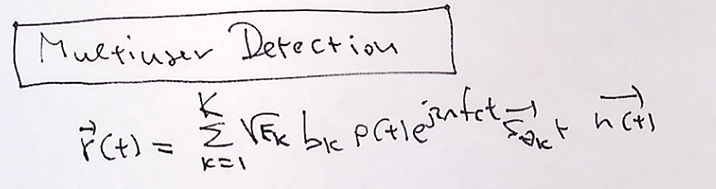 Multiuser Detection
r⃗(t) = Σ_{k=1}^{K} √E_k b_k p(t) e^{j2πf_c t} s⃗_{θ_k} + n⃗(t)